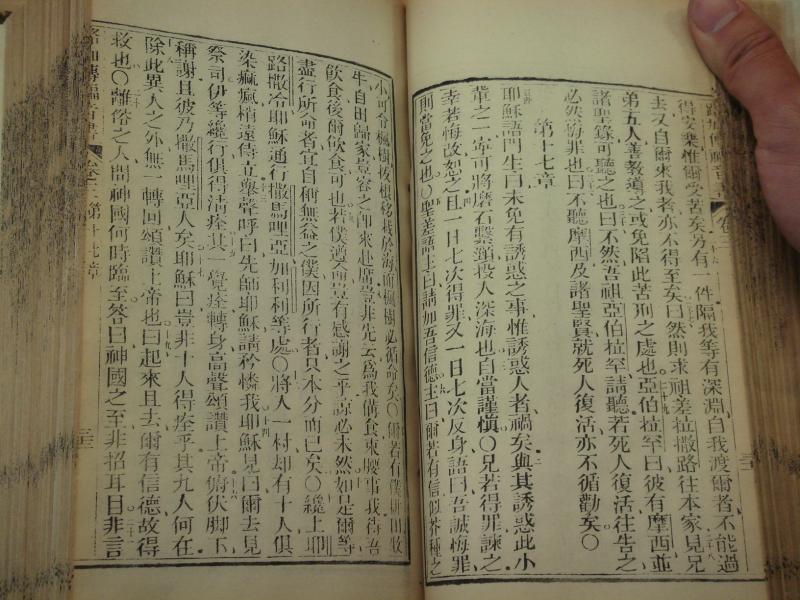 得安樂惟爾受苦矣另有一件隔我等有深淵自我渡爾者不能過
去又自爾來我者亦不得至矣曰然則求祖差拉撒路往本家見兄
弟五人善教導之或免陷此苦刑之處也亞伯拉罕曰彼有摩西並
諸聖錄可聽之也曰不然吾祖亞伯拉罕請聽若死人復活往告之
必然悔罪也曰不聽摩西及諸聖賢就死人復活亦不循勸矣○
第十七章
耶穌語門生言未免有誘惑之事惟誘惑人者禍矣與其誘惑此小
輩之一寧可將磨石繫頸投人深海也自當謹慎○兄若得罪諫之
幸若悔改恕之且一日七次得罪又一日七次反身語曰吾誠悔罪
則當免之也○聖差語主曰請加吾信德主曰爾若有信似芥種之
小可令楓樹拔根移栽於海而楓樹必循命矣○爾若有僕耕田牧
牛自田歸家豈容之即來赴席豈非先云爲我備食束腰事我待吾
飲食後爾飲食可也若僕遵命豈有感謝之乎諒必未然如是爾等
盡行所命者宜自稱無益之僕因所行者只本分而已矣○纔上耶
路撒冷耶穌通行撒馬哩亞加利利等處○將人一村却有十人俱
染痲瘋稍遠侍立舉聲呼曰先師耶穌請矜憐我耶穌見曰爾去見
祭司伊等纔行俱得清痊其一覺痊轉身高聲頌讚上帝俯伏脚下
稱謝且彼乃撒馬哩亞人矣耶穌曰豈非十人得痊乎其九人何在
除此異人之外無一轉回頌讚上帝也曰起來且去爾有信德故得
救也○離俗之人問神國何時臨至答曰神國之至非招耳目非言
路加傳福音書 卷三 第十七章